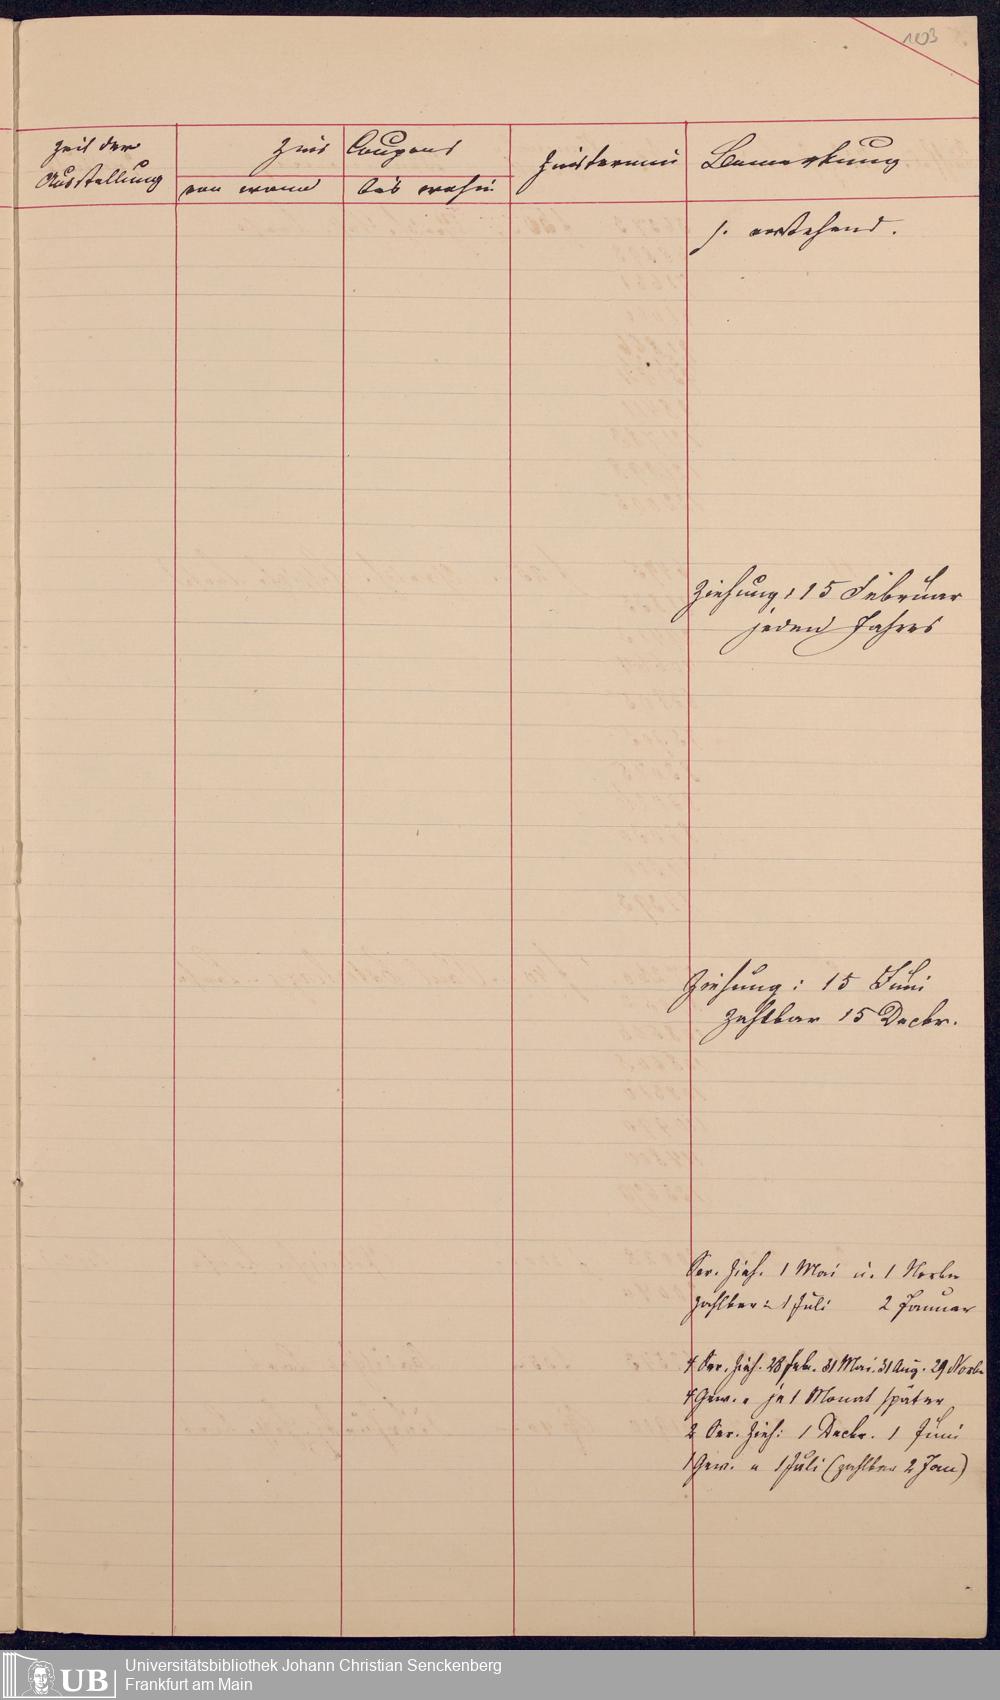 103
Zeit der
Ausstellung
Zins Coupons
von wann
bis wohin
Zinstermin
Bemerkung
s. vorstehend.
Ziehung: 15 Februar
jeden Jahres
Ziehung: 15 Juni
zahlbar 15 Decbr.
Ser. Zieh. 1 Mai u. 1 Novbr
zahlbar: 1 Juli 2 Januar
4 Ser. Zieh. 28 Feb. 31 Mai. 31 Aug. 29 Novbr
4 Gew. " je 1 Monat später
2 Ser. Zieh: 1 Decbr. 1 Juni
1 Gew. " 1 Juli (zahlbar 2 Jan)
UB
Universitätsbibliothek Johann Christian Senckenberg
Frankfurt am Main